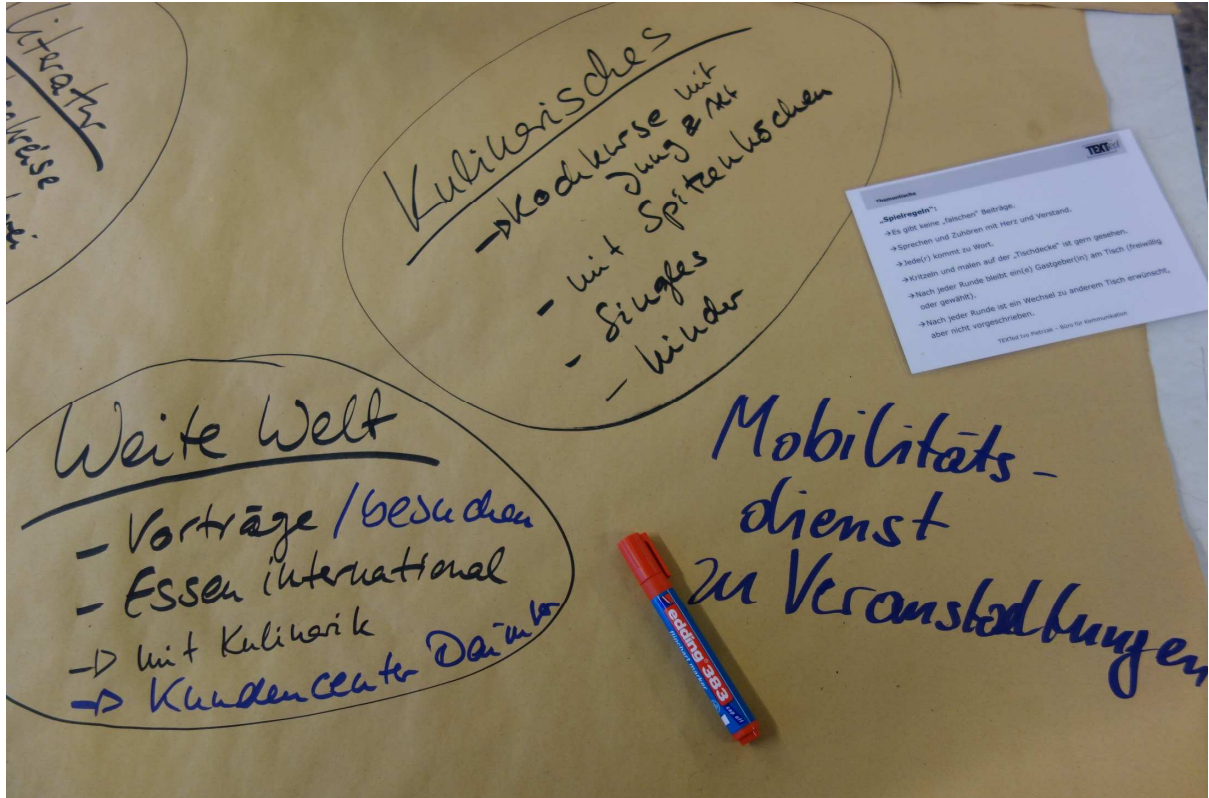 Literatur
Kulinarisches
→Kochkurse mit
Jung & Alt
- mit Spitzenköchen
- Singles
- Kinder
TEXTed
Thementische
„Spielregeln":
→Es gibt keine „falschen" Beiträge.
→Sprechen und Zuhören mit Herz und Verstand.
→Jede(r) kommt zu Wort.
→Kritzeln und malen auf der „Tischdecke" ist gern gesehen.
→Nach jeder Runde bleibt ein(e) Gastgeber(in) am Tisch (freiwillig
oder gewählt).
→Nach jeder Runde ist ein Wechsel zu anderem Tisch erwünscht,
aber nicht vorgeschrieben.
TEXTed Ivo Pietrzak – Büro für Kommunikation
Weite Welt
- Vorträge /besuchen
- Essen international
→ mit Kulinarik
→ Kundencenter Daimler
Mobilitäts-
dienst
zu Veranstaltungen
edding 383
flipchart marker